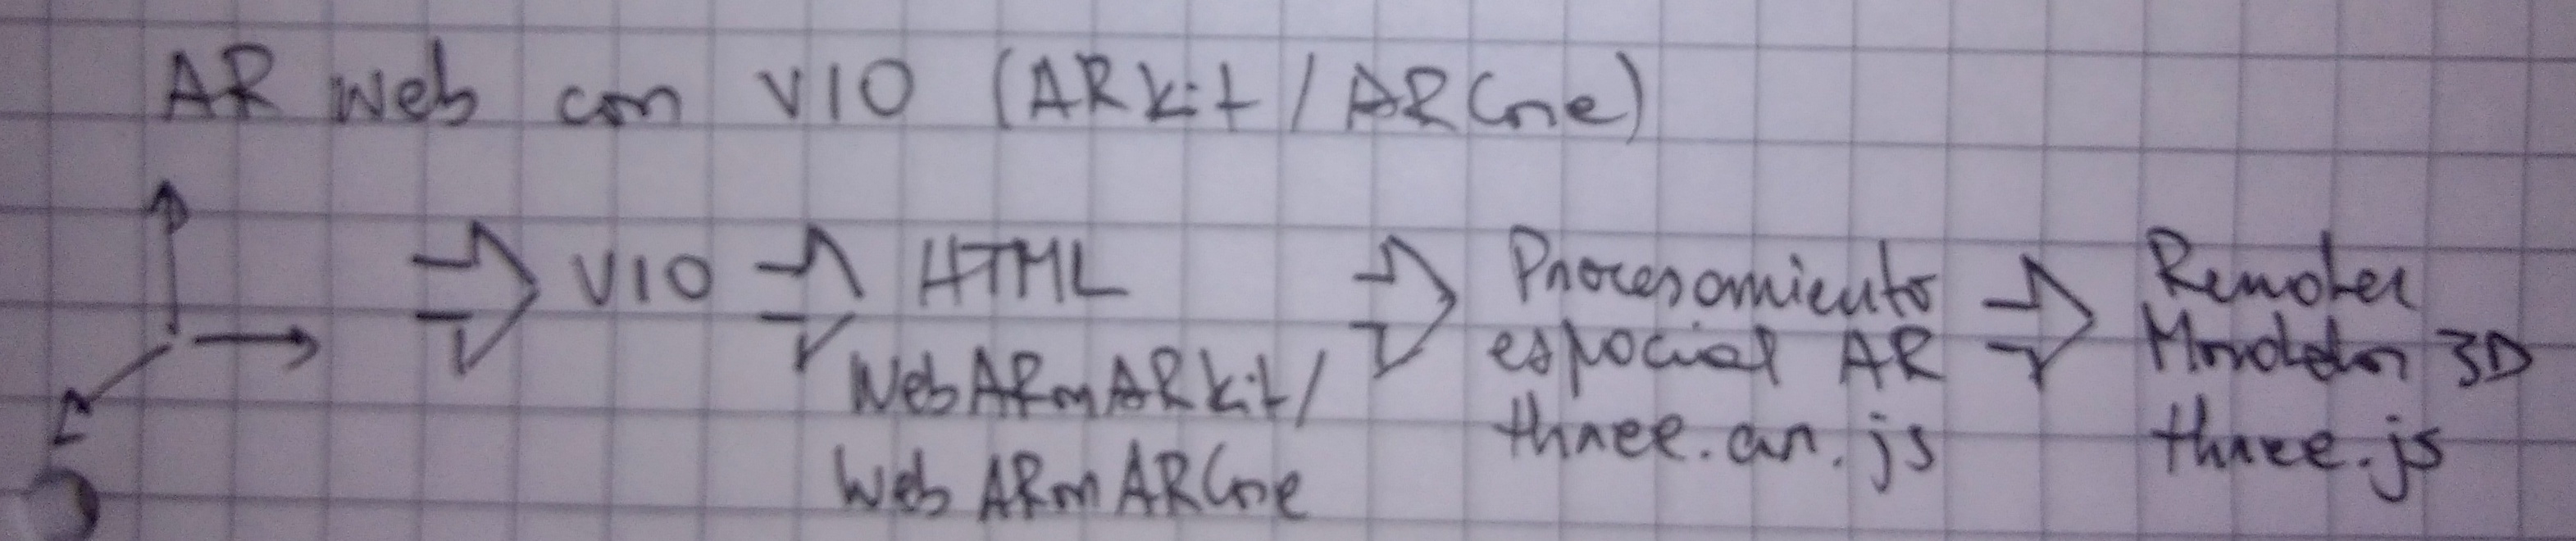 AR Web con VIO (ARKit/ARCore)
VIO
HTML
WebARonARKit/
WebARonARCore
Procesamiento
espacial AR
three.ar.js
Render
Modelos 3D
three.js